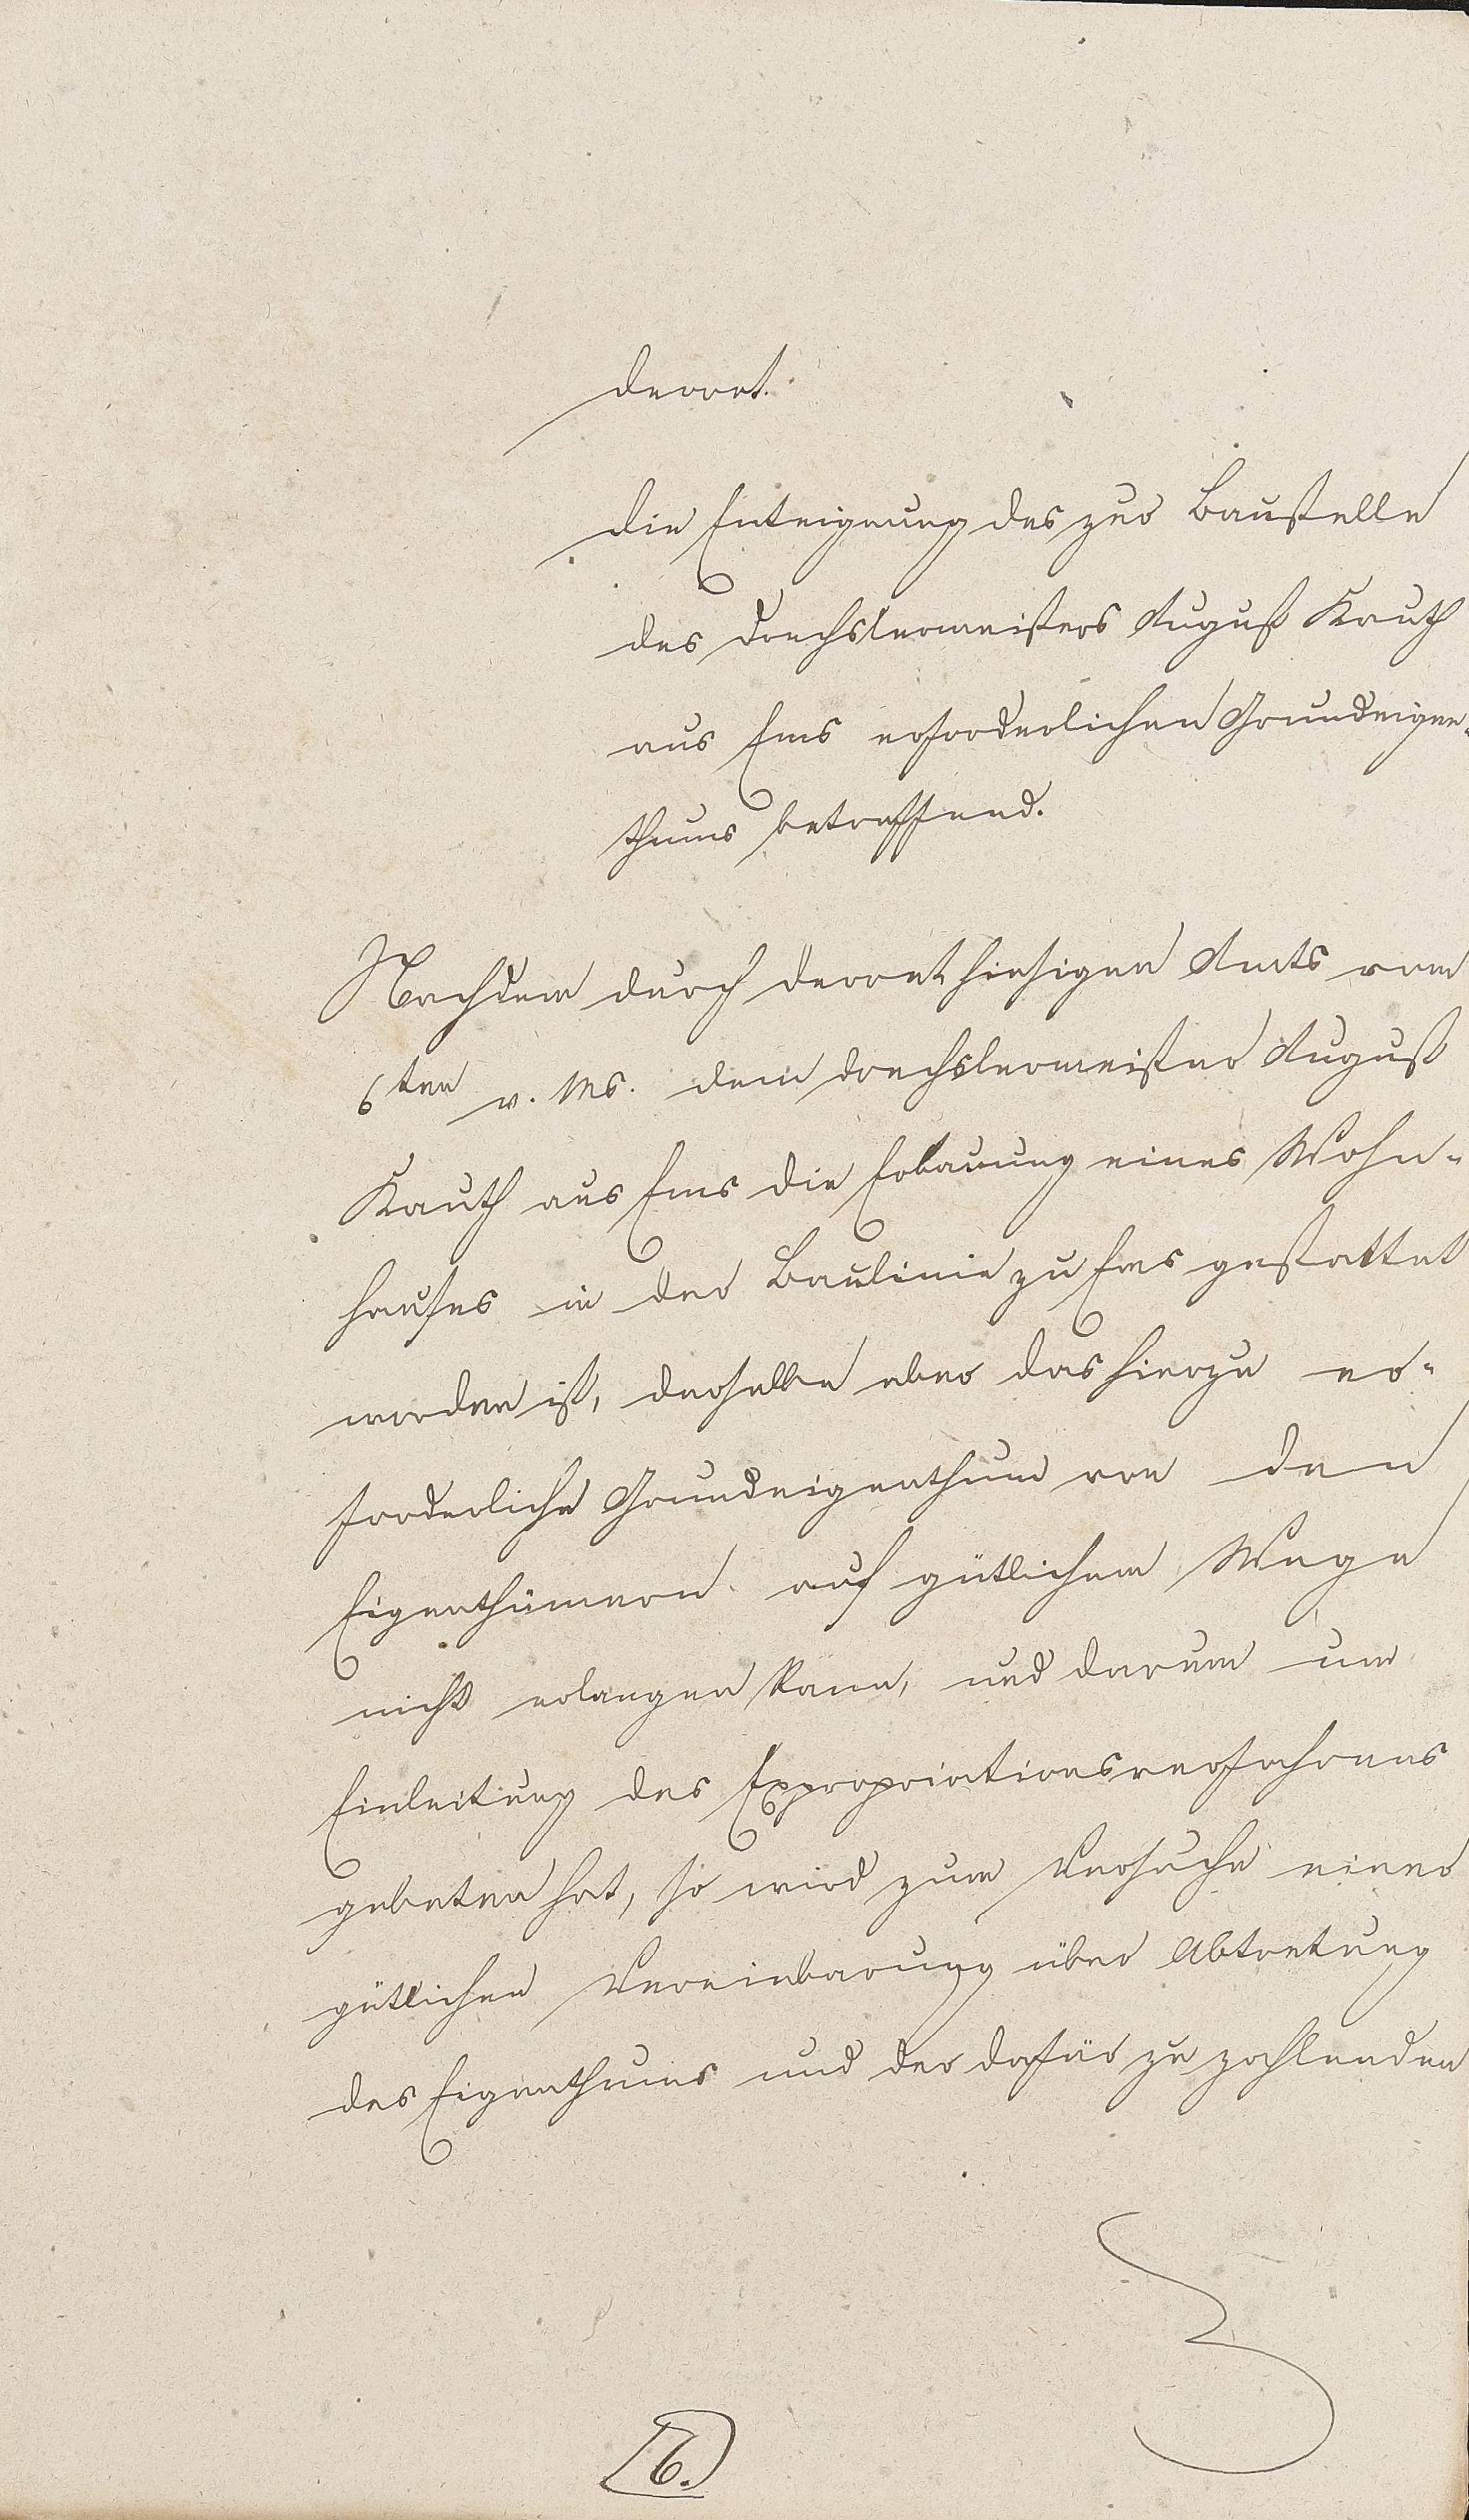 Decret.
Die Enteignung des zur Baustelle
des Drechslermeisters August Kauth
aus Ems erforderlichen Grundeigen-
thums betreffend.
Nachdem durch Decret hiesigen Amts vom
6ten v. Ms. dem Drechslermeister August
Kauth aus Ems die Erbauung eines Wohn-
hauses in der Baulinie zu Ems gestattet
worden ist, derselbe aber das hierzu er-
forderliche Grundeigenthum von den
Eigenthümern auf gütlichem Wege
nicht erlangen kann, und darum um
Einleitung des Expropriationsverfahrens
gebeten hat, so wird zum Versuche einer
gütlichen Vereinbarung über Abtretung
des Eigenthums und der dafür zu zahlenden
6.